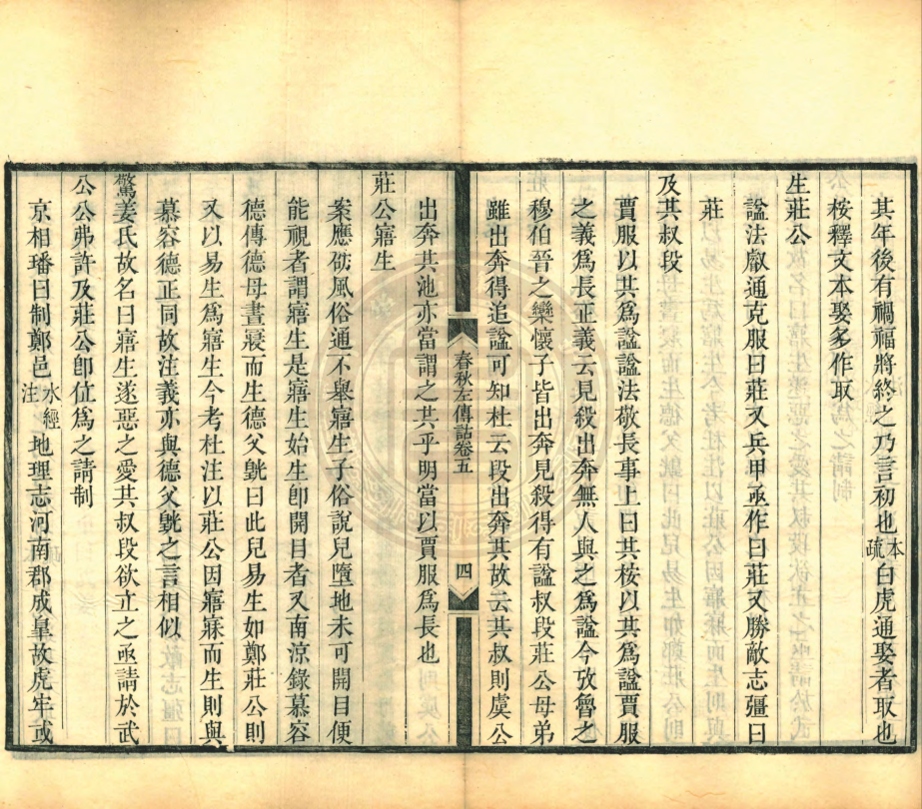 其年後有禍福將終之乃言初也本疏白虎通娶者取也
桉釋文本娶多作取
生莊公
諡法叡通克服曰莊又兵甲亟作曰莊又勝敵志彊曰
莊
及其叔段
賈服以其爲諡諡法敬長事上曰其桉以其爲諡賈服
之義爲長正義云見殺出奔無人與之爲諡今攷魯之
穆伯晉之欒懷子皆出奔見殺得有諡叔段莊公母弟
雖出奔得追諡可知杜云段出奔其故云其叔則虞公
出奔其池亦當謂之其乎明當以賈服爲長也
春秋左傳詁卷五
四
莊公寤生
案應劭風俗通不舉寤生子俗說兒墮地未可開目便
能視者謂寤生是寤生始生卽開目者又南涼錄慕容
德傳德母晝寢而生德父皝曰此兒易生如鄭莊公則
又以易生爲寤生今考杜注以莊公因寤寐而生則與
慕容德正同故注義亦與德父皝之言相似
驚姜氏故名曰寤生遂惡之愛其叔段欲立之亟請於武
公公弗許及莊公卽位爲之請制
京相璠曰制鄭邑水經注地理志河南郡成皐故虎牢或